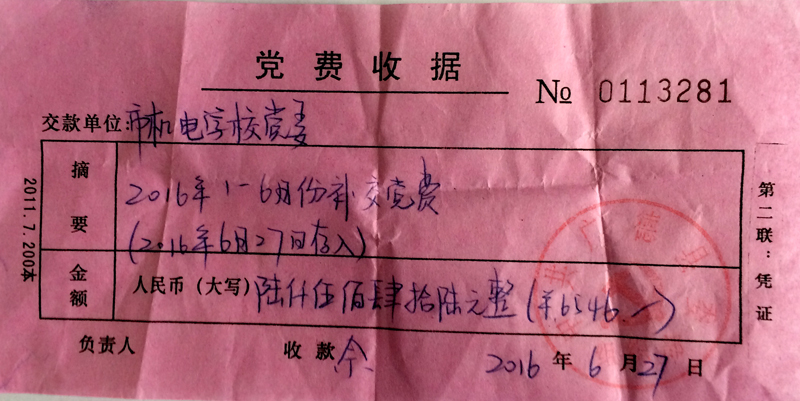 党费收据
№ 0113281
交款单位:市机电学校党委
摘要
2016年1-6月份补交党费
(2016年6月27日存入)
金额
人民币（大写）陆仟伍佰肆拾陆元整（¥6546.—）
负责人
收款
2016年6月27日
第二联：凭证
2011.7.200本